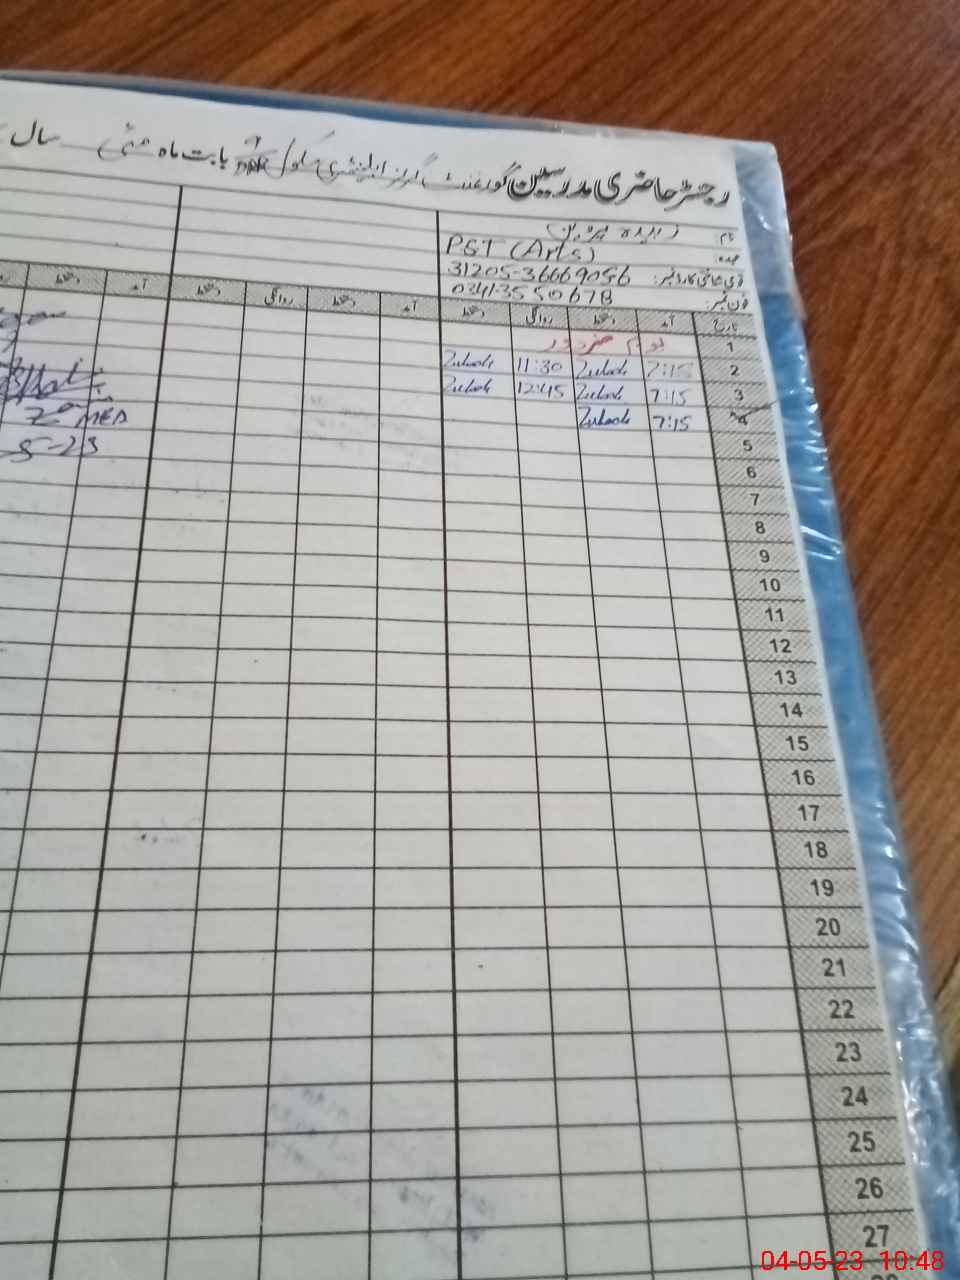 رجسٹر حاضری مدرسین گورنمنٹ گرلز ایلیمنٹری سکول بابت ماہ مئی سال
نام: زبیدہ پروین
عہدہ: PST (Arts)
قومی شناختی کارڈ نمبر: 31205-36669056
فون نمبر: 03413550678
تاریخ آمد دستخط روانگی دستخط آمد دستخط روانگی دستخط آمد دستخط
1 یوم مزدور
2 7:15 11:30
3 7:15 12:45
4 7:15
5
6
7
8
9
10
11
12
13
14
15
16
17
18
19
20
21
22
23
24
25
26
27
04-05-23 10:48